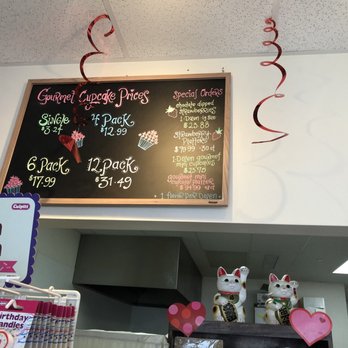 Gourmet Cupcake Prices
Single
$3.24
4 Pack
$12.99
6 Pack
$17.99
12 Pack
$31.49
Special Orders
chocolate dipped
Strawberries
1 Dozen
Strawberry
Platters
1 Dozen gourmet
mini cupcakes
$25.78
gourmet mini
1 flavor per Dozen
Culpitt
Birthday
Candles